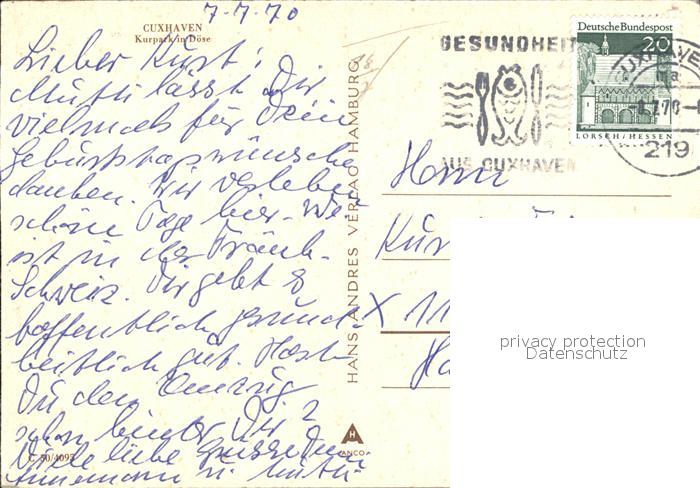 7-7-70
CUXHAVEN
Kurpark in Döse
Lieber Kurt!
Mutti lässt Dir
vielmals für Dein
Geburtstagswünsche
danken. Wir verleben
schöne Tage hier. We
ist in der Fränk.
Schweiz. Dir geht es
hoffentlich gesund-
heitlich gut. Hast
Du den Umzug
schon hinter Dir?
Viele liebe Grüsse Dein
u. Mutti
C 50/4095
HANS ANDRES VERLAG HAMBURG
ANCO
GESUNDHEIT
AUS CUXHAVEN
Deutsche Bundespost
20
LORSCH/HESSEN
CUXHAVEN
219
Herrn
Kur
X 11
Ha
privacy protection
Datenschutz